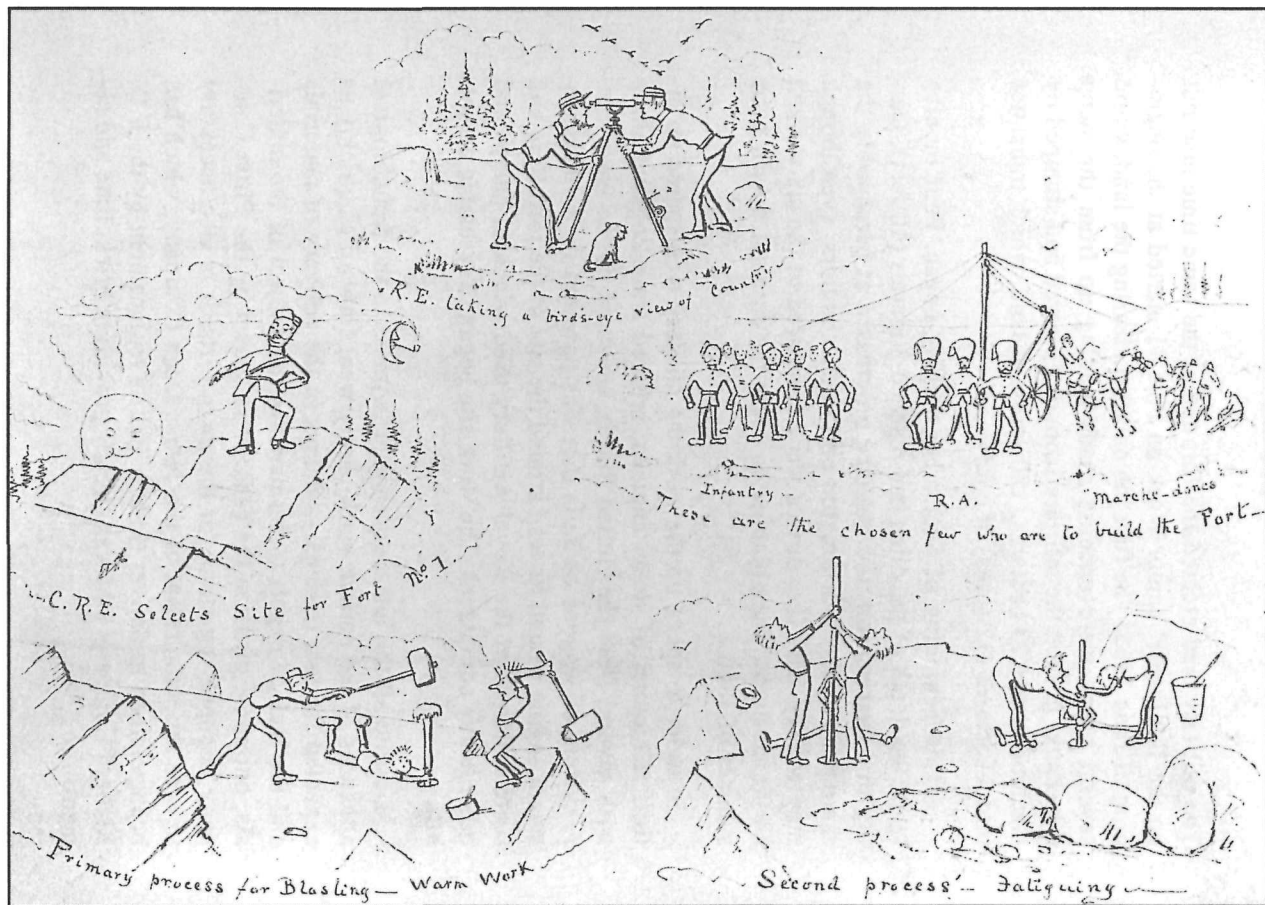 R.E. taking a bird's-eye view of Country
Infantry —
R.A.
"Marche-doncs"
These are the chosen few who are to build the Fort —
C.R.E. Selects Site for Fort No. 1
Primary process for Blasting — Warm Work
Second process — Fatiguing —